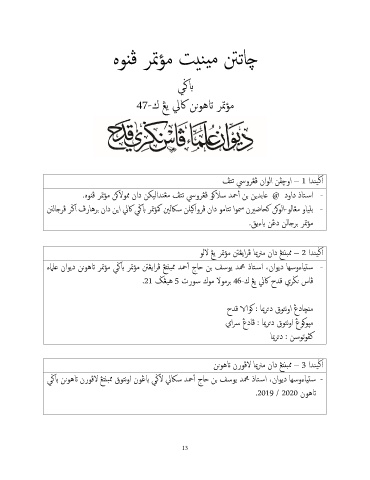 چاتتن مينيت مؤتمر ڤنوه
باݢي
مؤتمر تاهونن كالي يڠ ك-47
ديوان علماء ڤاس نݢري قدح
اݢيندا 1 – اوچڤن الوان ڤڠروسي تتڤ
- استاذ داود @ عابدين بن أحمد سلاكو ڤڠروسي تتڤ مڠنداليكن دان ممولاكن مؤتمر ڤنوه.
- بلياو مڠالو-الوكن كحاضيرن سموا تتامو دان ڤرواكيلن سكالين كمؤتمر باݢي كالي اين دان برهارڤ اݢر ڤرجالنن
مؤتمر برجالن دڠن باءيق.
اݢيندا 2 – ممبنتڠ دان منريما ڤرايڠتن مؤتمر يڠ لالو
- ستياءوسها ديوان، استاذ محمد يوسف بن حاج أحمد ممبنتڠ ڤرايڠتن مؤتمر باݢي مؤتمر تاهونن ديوان علماء
ڤاس نݢري قدح كالي يڠ ك-46 برمولا موك سورت 5 هيڠݢ 21.
منچادڠ اونتوق دتريما : كوالا قدح
مڽوكوڠ اونتوق دتريما : ڤادڠ سراي
كڤوتوسن : دتريما
اݢيندا 3 – ممبنتڠ دان منريما لاڤورن تاهونن
- ستياءوسها ديوان، استاذ محمد يوسف بن حاج أحمد سكالي لاݢي باڠون اونتوق ممبنتڠ لاڤورن تاهونن باݢي
تاهون 2020 / 2019.
13